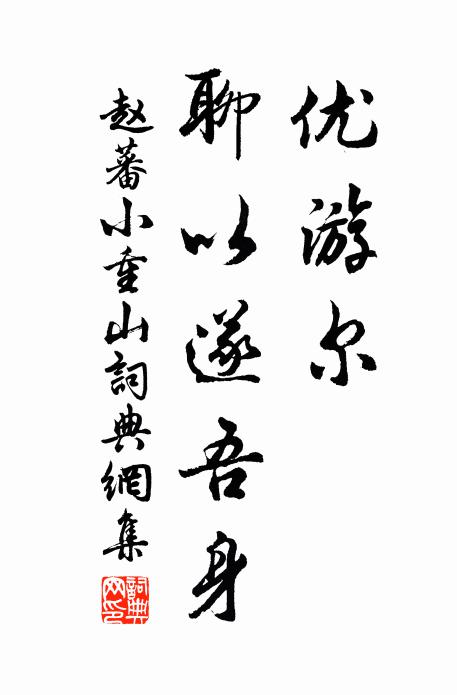 优游尔
聊以遂吾身
赵蕃小重山詞典網集
詞典网印